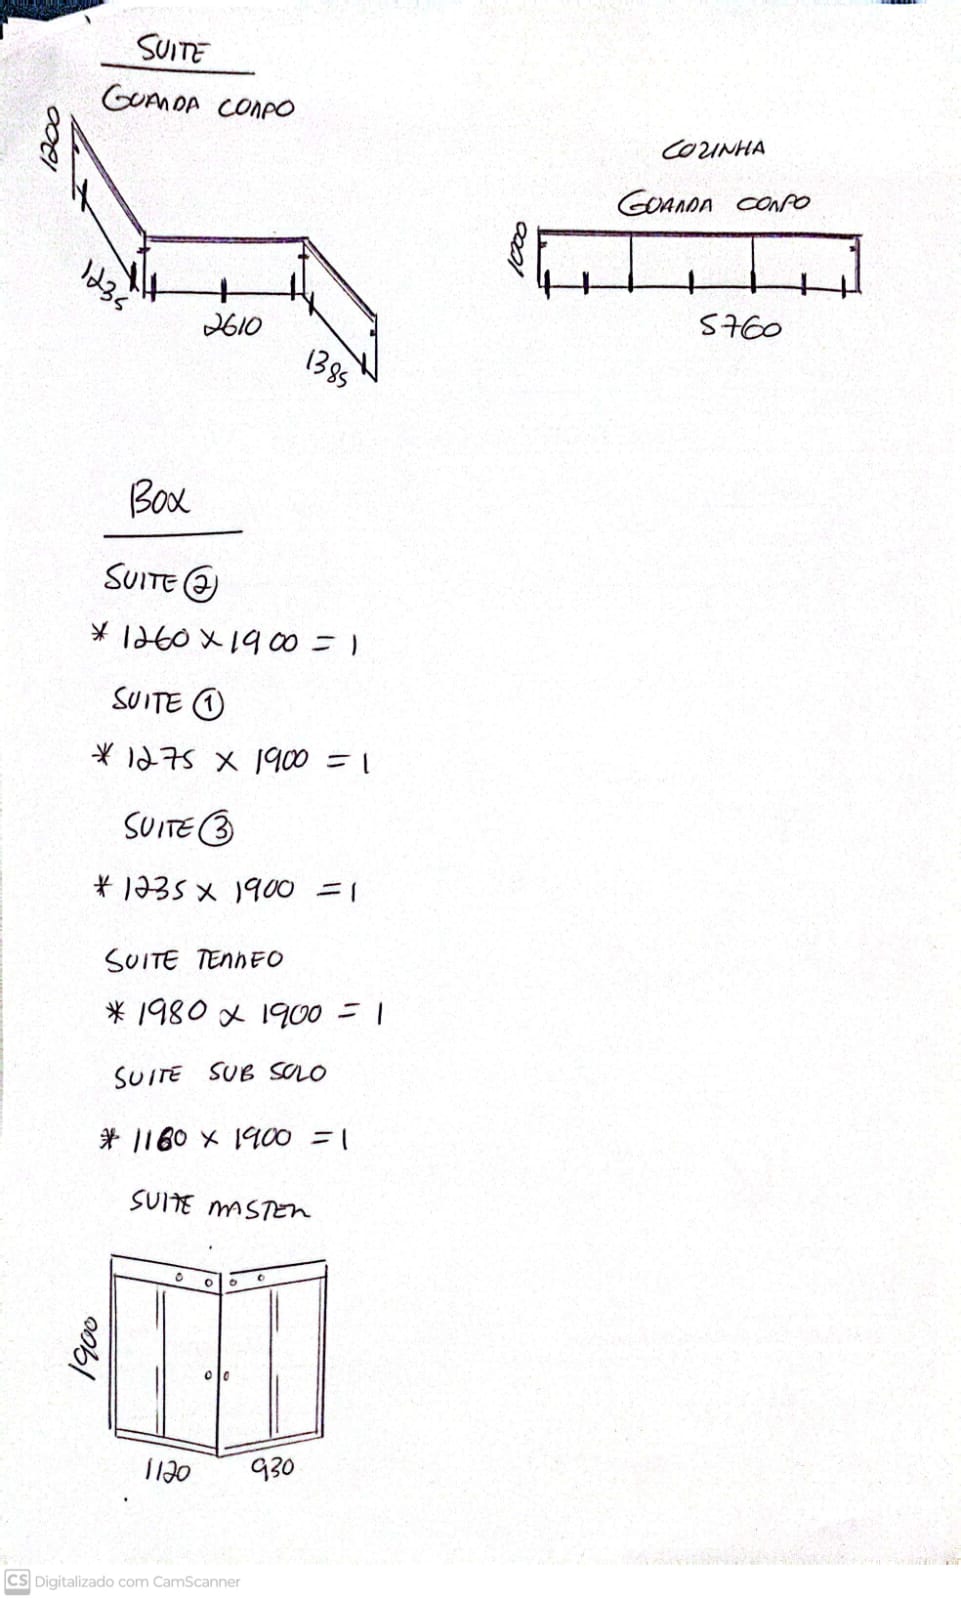 SUITE
GUARDA CORPO
1200
1235
2610
1385
COZINHA
GUARDA CORPO
1000
5760
BOX
SUITE 2
* 1260 x 1900 = 1
SUITE 1
* 1275 x 1900 = 1
SUITE 3
* 1235 x 1900 = 1
SUITE TERREO
* 1980 x 1900 = 1
SUITE SUB SOLO
* 1160 x 1900 = 1
SUITE MASTER
1900
1120
930
CS Digitalizado com CamScanner